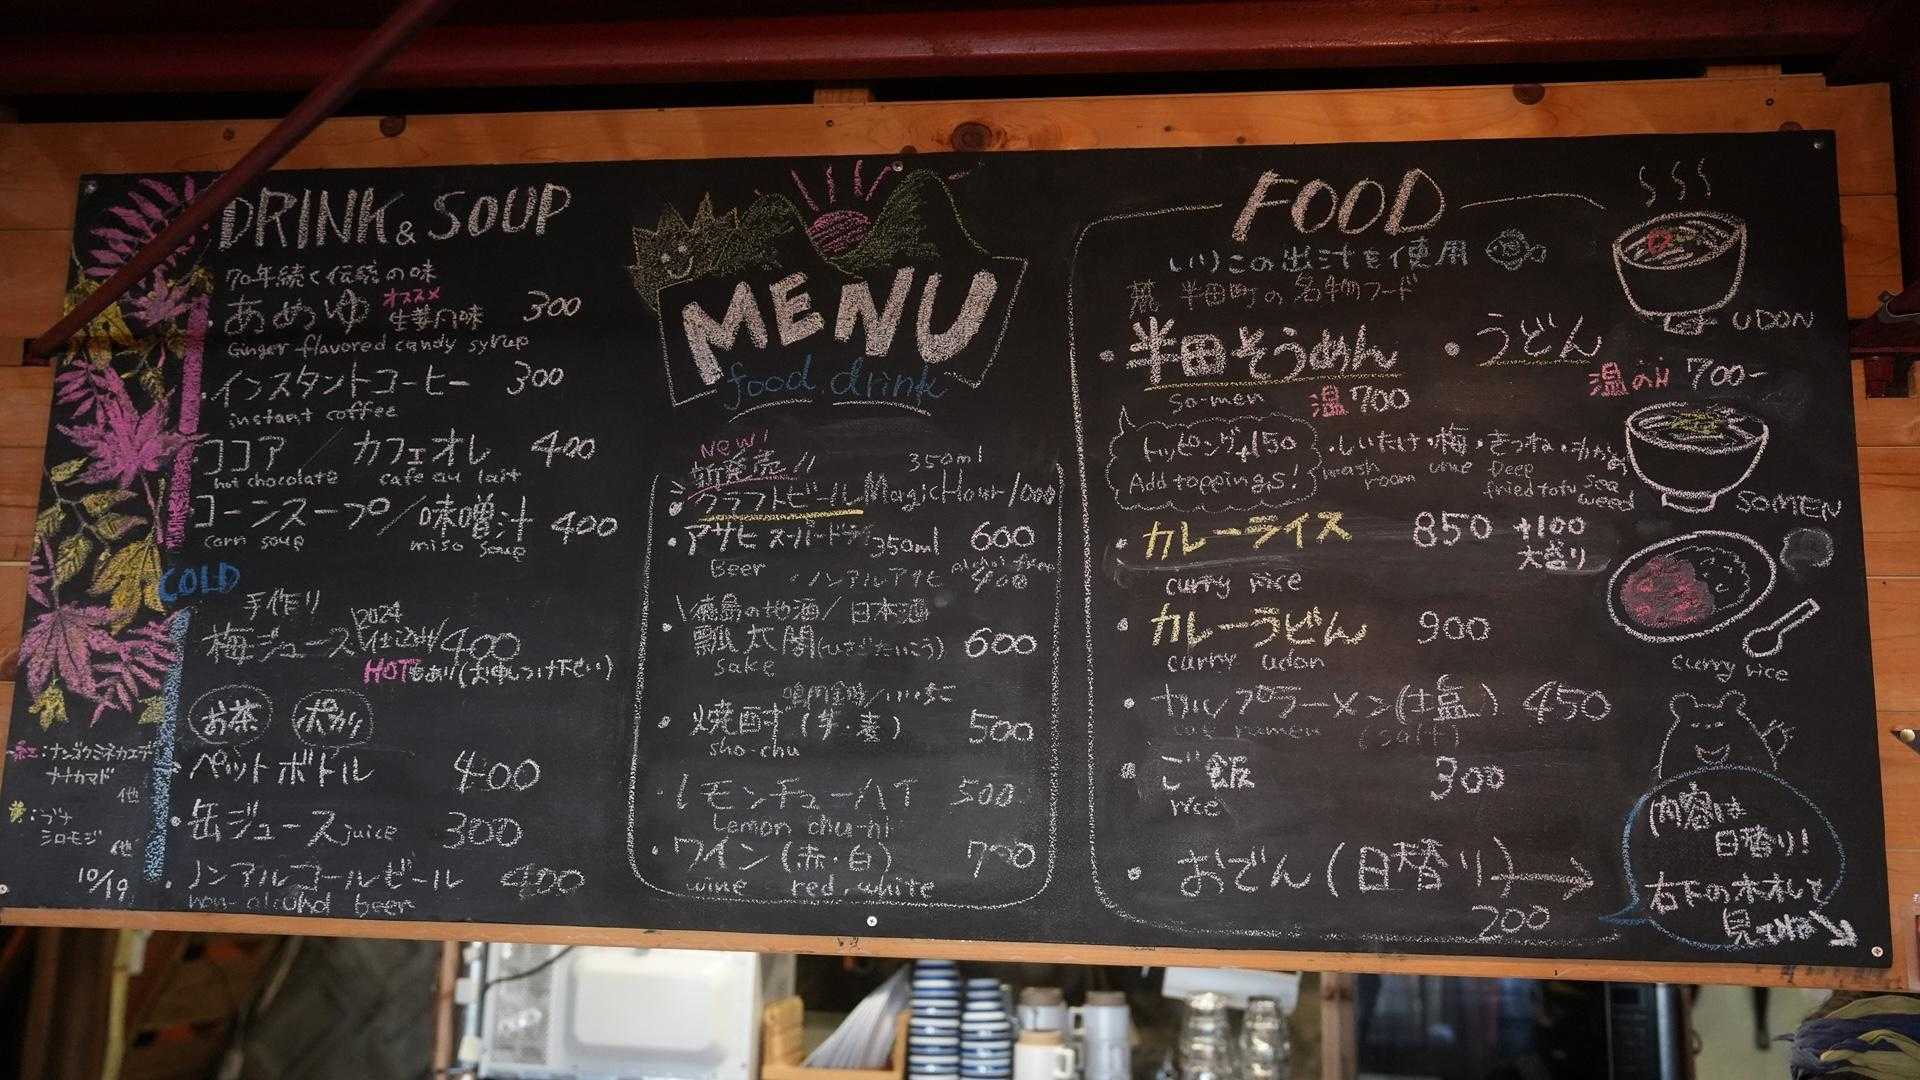 DRINK & SOUP
70年続く伝統の味
あめゆ オススメ 生姜風味 300
Ginger flavored candy syrup
・インスタントコーヒー 300
instant coffee
・ココア / カフェオレ 400
hot chocolate cafe au lait
コーンスープ/味噌汁 400
corn soup miso soup
COLD
手作り
梅ジュース 2024 仕込み 400
HOTもあり(お申しつけ下さい)
お茶 ポカリ
ペットボトル 400
・缶ジュース juice 300
・ノンアルコールビール 400
non-alcohol beer
紅:ナンゴクミネカエデ
ナナカマド
他
黄:ブナ
シロモジ
他
10/19
MENU
food drink
New!
新発売!! 350ml
・クラフトビール Magic Hour 1000
・アサヒスーパードライ 350ml 600
Beer ・ノンアルアサヒ alcohol free 400
\徳島の地酒/日本酒
・瓢太閤(ひさごたいこう) 600
sake
鳴門金時/いいちこ
・焼酎(芋・麦) 500
sho-chu
・レモンチューハイ 500
Lemon chu-hi
・ワイン(赤・白) 700
wine red.white
FOOD
いりこの出汁を使用
麓 半田町の名物フード
・半田そうめん
so-men 温 700
・うどん
温のみ 700-
トッピング+150
Add toppings!
・しいたけ・梅・きつね・わかめ
mash room ume Deep fried tofu sea weed
・カレーライス 850 +100 大盛り
curry rice
・カレーうどん 900
curry udon
・カップラーメン(塩) 450
cup ramen (salt)
・ご飯 300
rice
・おでん(日替り)→
200
UDON
SOMEN
curry rice
内容は
日替り!
右下のオオして
見てね